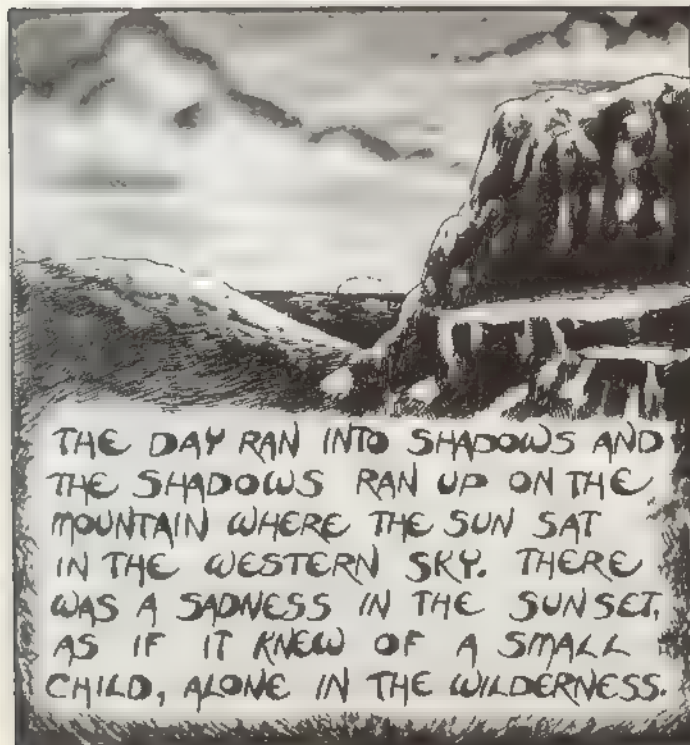 THE DAY RAN INTO SHADOWS AND
THE SHADOWS RAN UP ON THE
MOUNTAIN WHERE THE SUN SAT
IN THE WESTERN SKY. THERE
WAS A SADNESS IN THE SUNSET,
AS IF IT KNEW OF A SMALL
CHILD, ALONE IN THE WILDERNESS.